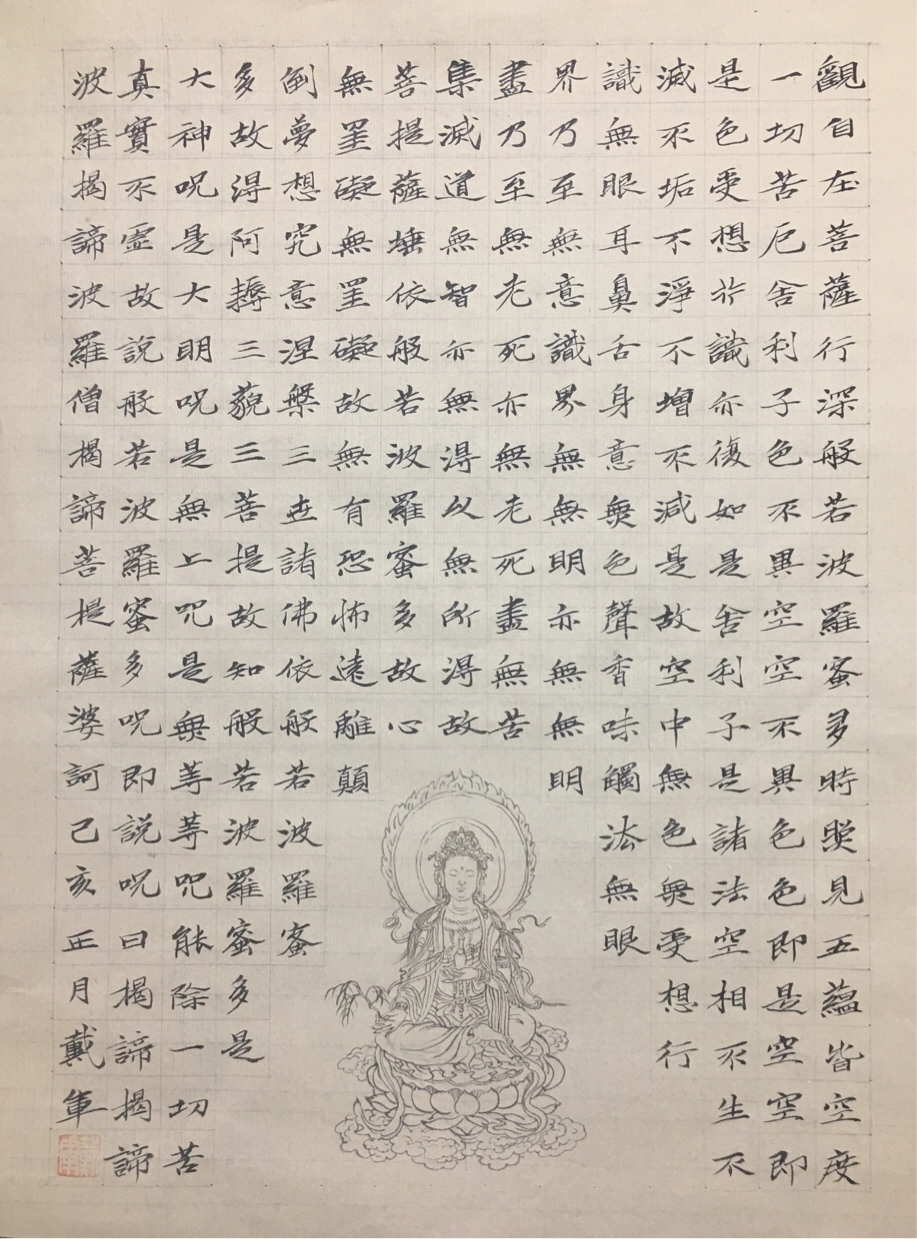 觀自在菩薩行深般若波羅蜜多時照見五蘊皆空度
一切苦厄舍利子色不異空空不異色色即是空空即
是色受想行識亦復如是舍利子是諸法空相不生不
滅不垢不淨不增不減是故空中無色無受想行
識無眼耳鼻舌身意無色聲香味觸法無眼
界乃至無意識界無無明亦無無明
盡乃至無老死亦無老死盡無苦
集滅道無智亦無得以無所得故
菩提薩埵依般若波羅蜜多故心
無罣礙無罣礙故無有恐怖遠離顛
倒夢想究竟涅槃三世諸佛依般若波羅蜜
多故得阿耨三藐三菩提故知般若波羅蜜多是
大神呪是大明呪是無上呪是無等等呪能除一切苦
真實不虛故說般若波羅蜜多呪即說呪曰揭諦揭諦
波羅揭諦波羅僧揭諦菩提薩婆訶己亥正月戴軍